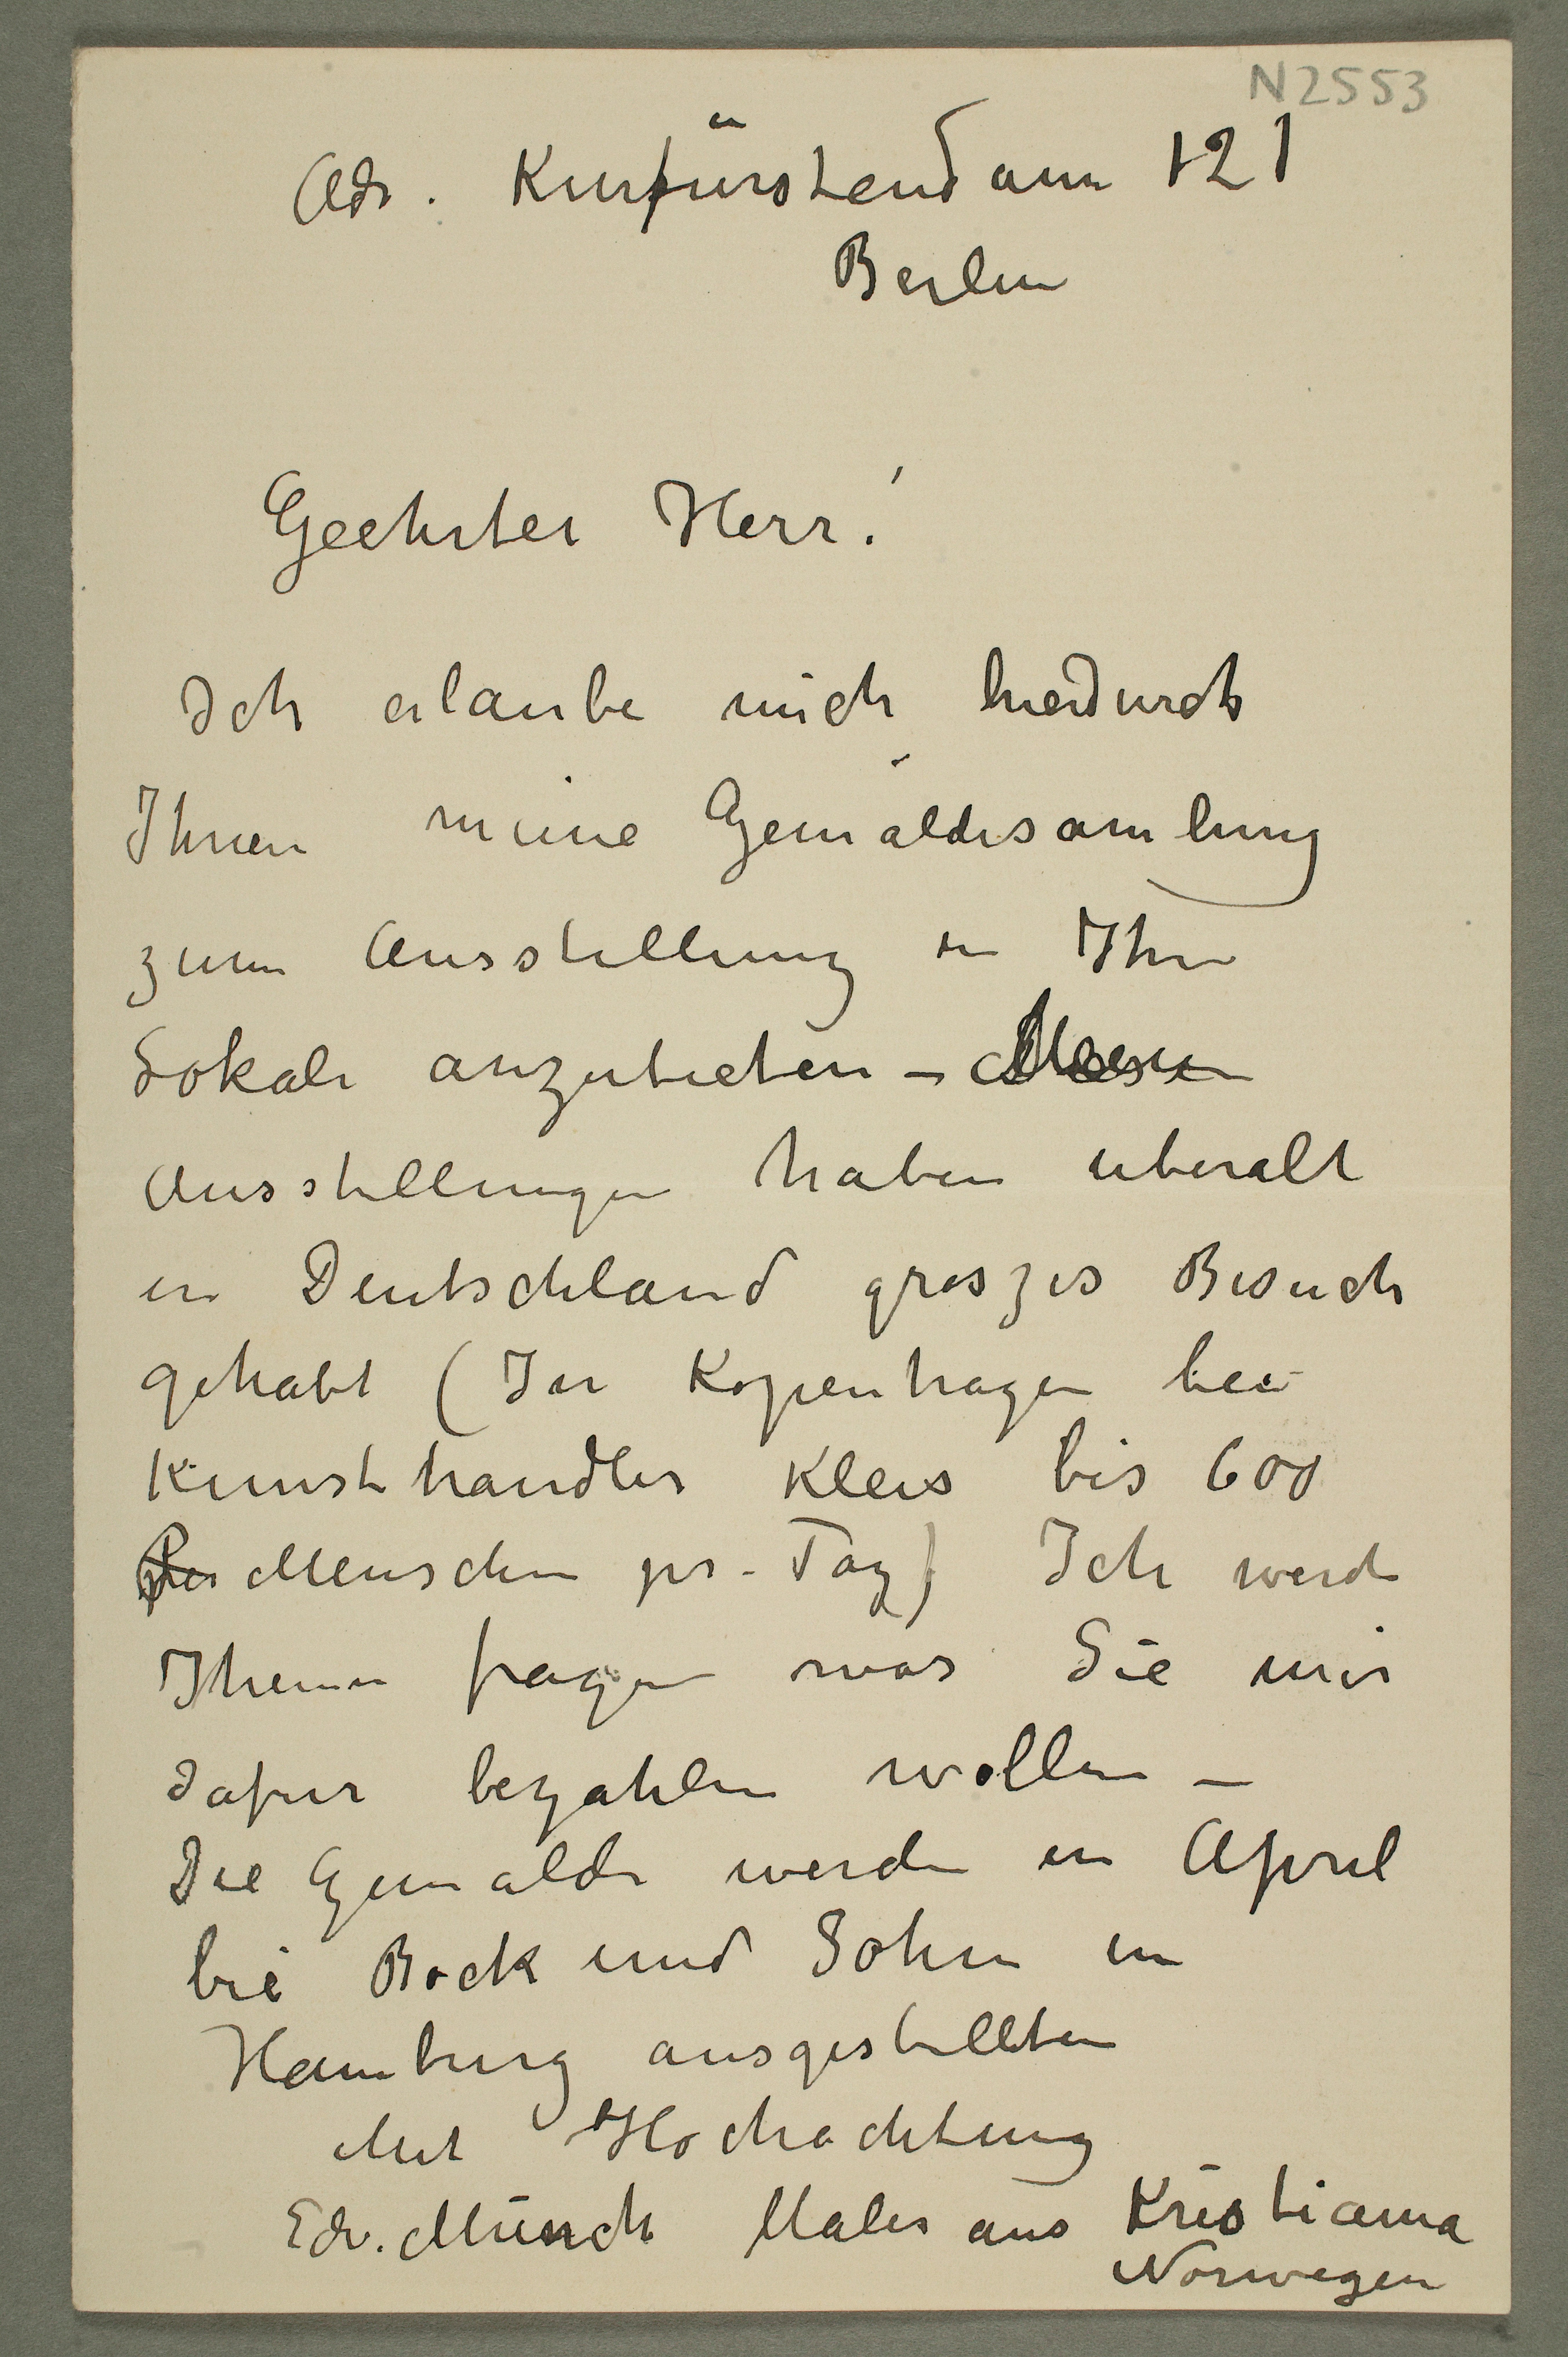 N 2553
Adr. Kurfürstendam 121
Berlin
Geehrter Herr!
Ich erlaube mich hierdurch
Ihnen meine Gemäldesamlung
zum Ausstellung in Ihr
Lokale anzubieten – Meine
Ausstellungen haben uberalt
in Deutschland groszes Besuch
gehabt (In Kopenhagen bei
Kunsthandler Kleis bis 600
Menschen pr. Tag) Ich werde
Ihenen fragen was Sie mir
dafur bezahlen wollen –
Die Gemalde werden in April
bei Bock und Sohn in
Hamburg ausgestellten
Mit Hochachtung
Edv. Munch Maler aus Kristiania
Norwegen